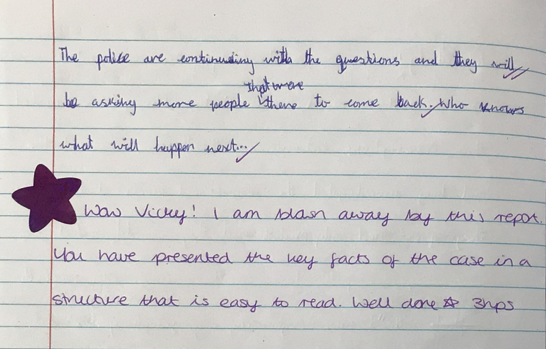 The police are continuing with the questions and they will
that were
be asking more people there to come back. Who knows
what will happen next...
Wow Vicky! I am blown away by this report.
You have presented the key facts of the case in a
structure that is easy to read. Well done ☆ 3hps